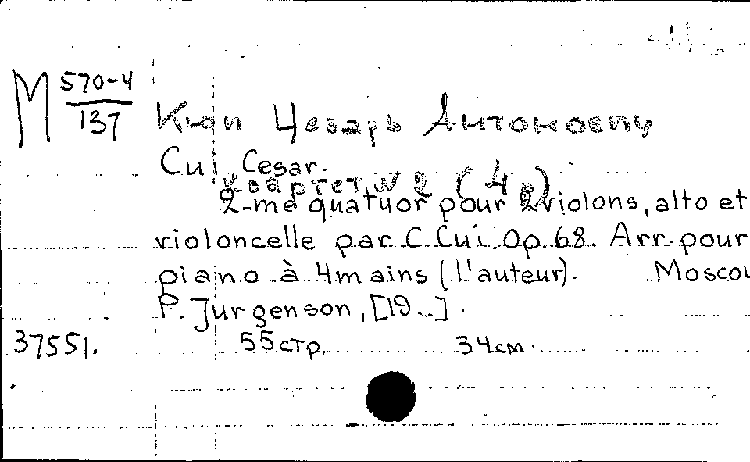 М 570-4
137
Кюи Цезарь Антонович
Cui, Cesar.
Квартет № 2 (4 р)
2-me quatuor pour 2 violons, alto et
violoncelle par C. Cui. Op. 68. Arr. pour
piano à 4 mains (l'auteur). Moscou
P. Jurgenson, [19..].
37551. 55 стр. 34 см.